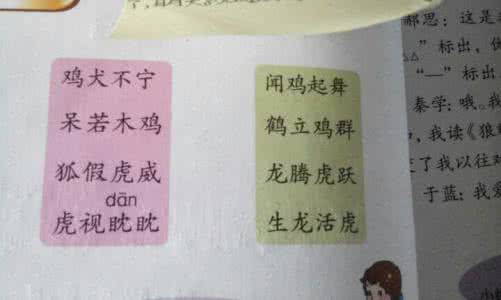 鸡犬不宁
呆若木鸡
狐假虎威
dān
虎视眈眈
闻鸡起舞
鹤立鸡群
龙腾虎跃
生龙活虎
郝思：这是
”标出，
“—”标出
秦学：哦。我
，我读《狼
了我以往对
于蓝：我爱